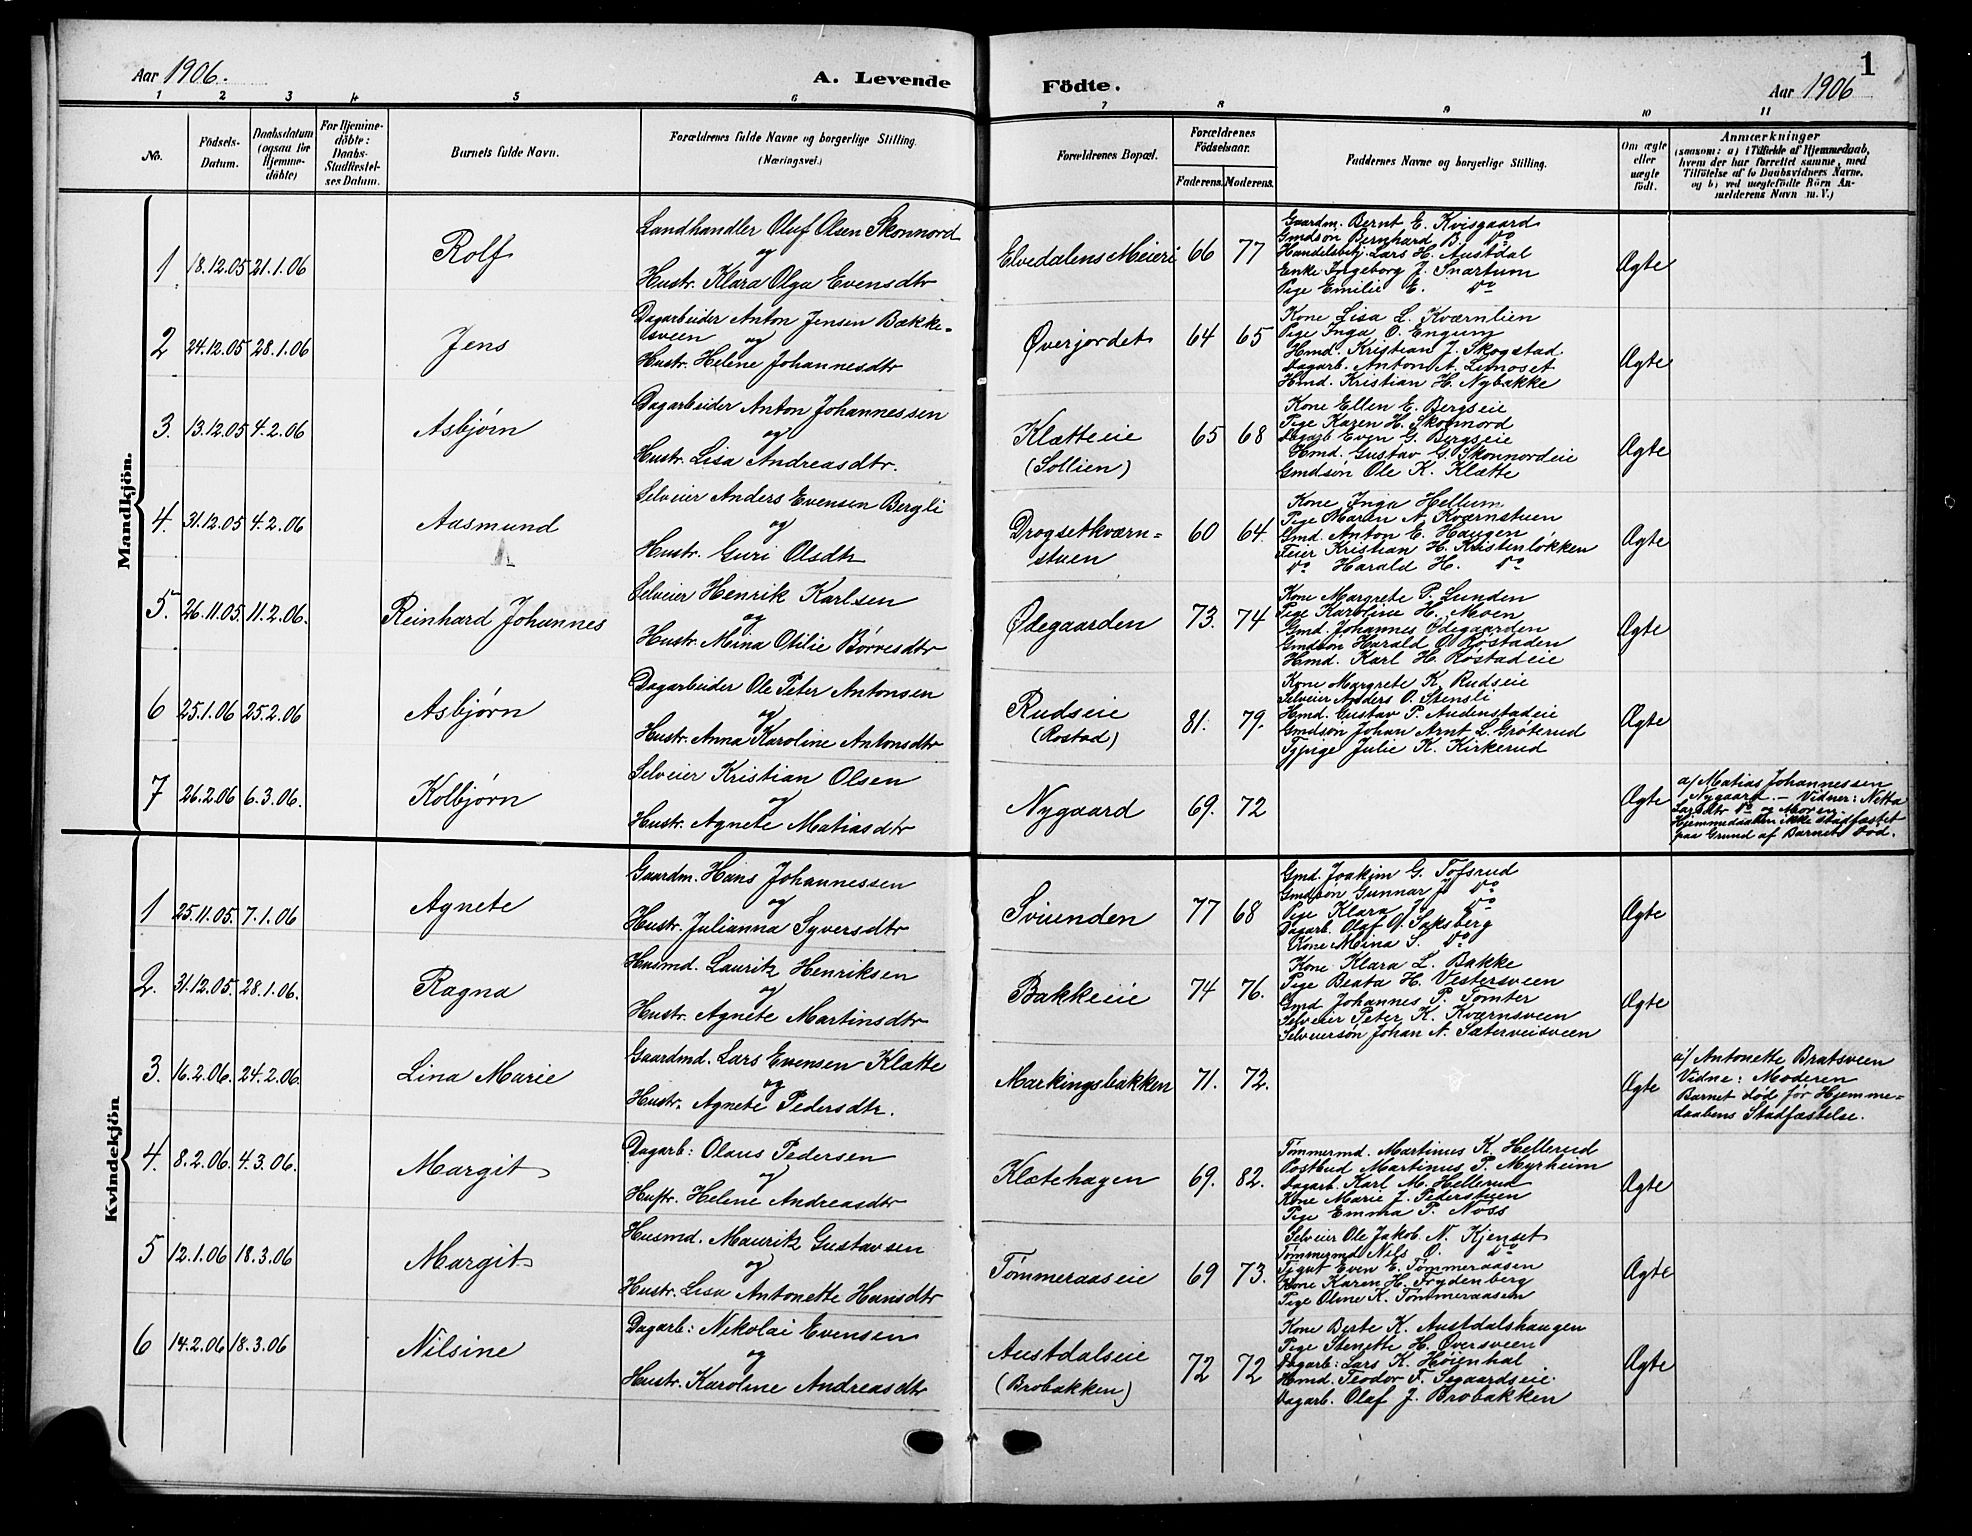 Aar 1906.
A. Levende
Födte.
Aar 1906
1
1 2 3 4 5 6 7 8 9 10 11
No.
Födsels-
Datum.
Daabsdatum
(ogsaa for
Hjemme-
döbte)
For Hjemme-
döbte:
Daabs-
Stadfæstel-
ses Datum.
Barnets fulde Navn.
Forældrenes fulde Navne og borgerlige Stilling.
(Næringsvei.)
Forældrenes Bopæl.
Forældrenes
Födselsaar.
Faderens. Moderens.
Faddernes Navne og borgerlige Stilling.
Om ægte
eller
uægte
födt.
Anmærkninger
(saasom: a) i Tilfælde af Hjemmedaab,
hvem der har forrettet samme, med
Tilföielse af to Daabsvidners Navne,
og b) ved uægtefödte Börn An-
melderens Navn m. V.)
Mandkjön.
1 18.12.05 21.1.06
Rolf
Landhandler Oluf Olsen Skonnord
og
Hustr. Klara Olga Evensdtr
Elvedalens Meieri 66 77
Gaardm. Bernt E. Kvisgaard
Gmdsøn Bernhard B. do
Handelsbetj. Lars H. Austdal
Enke Ingeborg J. Snartum
Pige Emilie E. do
Ægte
2 24.12.05 28.1.06
Jens
Dagarbeider Anton Jensen Bække-
sveen og
Hustr. Helene Johannesdtr
Øverjordet 64 65
Kone Lisa L. Kværnlien
Pige Inga O. Engum
Hmd. Kristian J. Skogstad
Dagarb. Anton A. Limoset
Hmd. Kristian H. Nybakke
Ægte
3. 13.12.05 4.2.06
Asbjørn
Dagarbeider Anton Johannessen
og
Hustr. Lisa Andreasdtr.
Klætteeie
(Sollien)
65 68
Kone Ellen E. Bergseie
Pige Karen H. Skonnord
Dagarb Even G. Bergseie
Hmd. Gustav G. Skonnordeie
Gmdsøn Ole K. Klætte
Ægte
4. 31.12.05 4.2.06
Aasmund
Selveier Anders Evensen Bergli
og
Hustr. Guri Olsdtr
Drogsetkværn-
stuen
60 64.
Kone Inga Hellum
Pige Maren A. Kværnstuen
Gmd. Anton E. Haugen
Feier Kristian H. Kristenløkken
do Harald H. do
Ægte
5. 26.11.05. 11.2.06.
Reinhard Johannes
Selveier Henrik Karlsen
og
Hustr. Mina Otilie Børresdtr
Ødegaarden 73. 74
Kone Margrete P. Lunden
Pige Karoline H. Moen
Gmd. Johannes Ødegaarden
Gmdsøn Harald O. Røstaden
Hmd. Karl H. Røstadeie
Ægte
6 25.1.06 25.2.06
Asbjørn
Dagarbeider Ole Peter Antonsen
og
Hustr. Anna Karoline Antonsdtr
Rudseie
(Rostad)
81. 79.
Kone Margrete K. Rudseie
Selveier Anders O. Stensli
Hmd. Gustav P. Audenstadeie
Gmdsøn Johan Arnt L. Grøterud
Tjpige Julie K. Kirkerud
Ægte
7 26.2.06 6.3.06.
Kolbjørn
Selveier Kristian Olsen
og
Hustr. Agnete Matiasdtr
Nygaard 69. 72
Ægte
a/ Matias Johannessen
Nygaard. — Vidner: Netta
Larsdtr do og Moren.
Hjemmedaaben ikke stadfæstet
paa Grund af Barnets Død.
Kvindekjön
1 25.11.05. 7.1.06
Agnete
Gaardm. Hans Johannessen
og
Hustr. Julianna Syversdtr
Sviunden 77 68
Gmd. Joakim G. Tofsrud
Gmdsøn Gunnar J. do
Pige Klara J. do
Dagarb. Olaf O. Saksberg
Kone Mina S. do
Ægte
2. 31.12.05. 28.1.06.
Ragna
Husmd. Lauritz Henriksen
og
Hustr. Agnete Martinsdtr
Bakkeeie 74 76.
Kone Klara L. Bakke
Pige Beata H. Vestersveen
Gmd Johannes P. Tomter
Selveier Peter K. Kværnsveen
Selveiersøn Johan A. Sæterveisveen
Ægte
3. 16.2.06. 24.2.06.
Lina Marie
Gaardmd. Lars Evensen Klætte
og
Hustr. Agnete Pedersdtr.
Markingsbakken 71. 72.
Ægte
a/ Antonette Bratsveen
Vidne: Moderen
Barnet død før Hjemme-
daabens Stadfæstelse.
4. 8.2.06. 4.3.06.
Margit
Dagarb: Olaus Pedersen
og
Hustr. Helene Andreasdtr
Klætehagen 69. 82.
Tømmermd. Martinus K. Hellerud
Postbud Martinus P. Myrheim
Dagarb. Karl M. Hellerud
Kone Marie J. Pederstuen
Pige Emma P. Noss
Ægte
5 12.1.06 18.3.06
Margit
Husmd. Mauritz Gustavsen
og
Hustr. Lisa Antonette Hansdtr
Tømmeraaseie 69 73.
Selveier Ole Jakob N. Kjenset
Tømmermd Nils O. do
Tjgut Even E. Tømmeraasen
Kone Karen H. Frydenberg
Pige Oline K. Tømmeraasen
Ægte
6 14.2.06 18.3.06
Nilsine
Dagarb: Nikolai Evensen
og
Hustr. Karoline Andreasdtr
Austdalseie
(Brobakken)
72 72
Kone Berte K. Austdalshaugen
Pige Stenette H. Øversveen
Dagarb: Lars K. Høienhal
Hmd. Teodor F. Isgaardseie.
Dagarb. Olaf J. Brobakken
Ægte